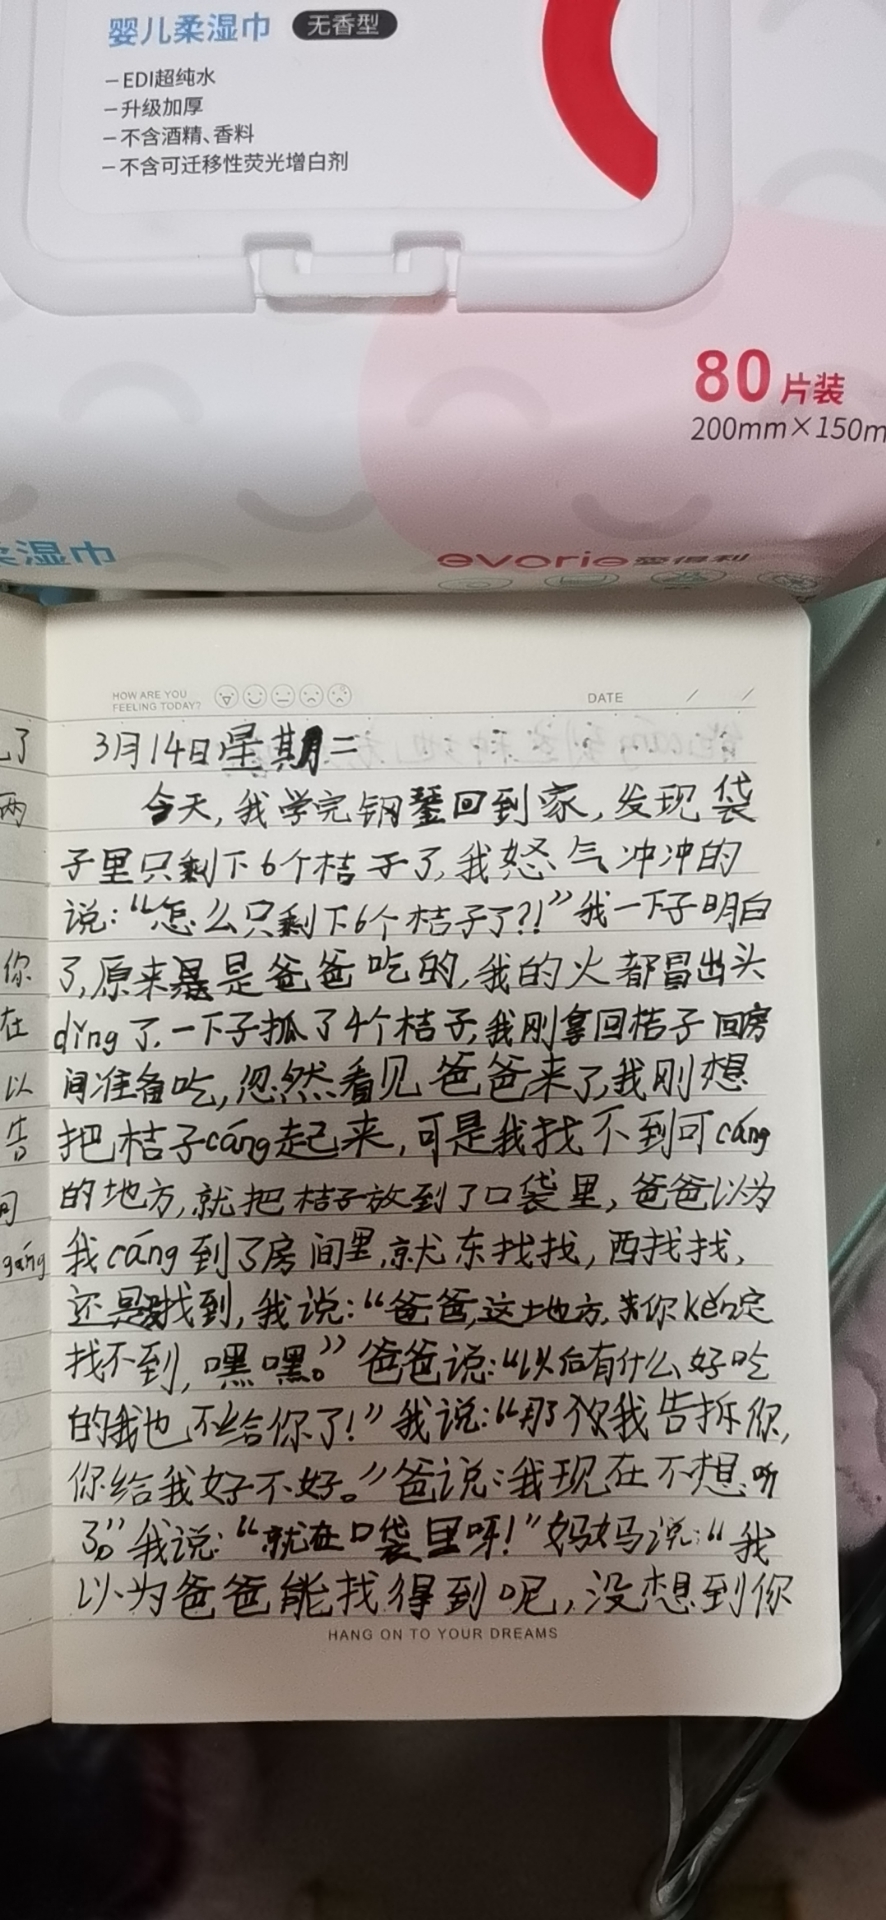 婴儿柔湿巾 无香型
－EDI超纯水
－升级加厚
－不含酒精、香料
－不含可迁移性荧光增白剂
80片装
200mm×150m
柔湿巾
evorie 爱得利
HOW ARE YOU
FEELING TODAY?
DATE / /
3月14日星期二
今天，我学完钢琴回到家，发现袋
子里只剩下6个桔子了，我怒气冲冲的
说：“怎么只剩下6个桔子了？！”我一下子明白
了，原来是爸爸吃的，我的火都冒出头
dǐng了。一下子抓了4个桔子，我刚拿回桔子回房
间准备吃，忽然看见爸爸来了，我刚想
把桔子cáng起来，可是我找不到可cáng
的地方，就把桔子放到了口袋里，爸爸以为
我cáng到了房间里，就东找找，西找找，
还是找到，我说：“爸爸，这土地方，你kěn定
找不到，嘿嘿。”爸爸说：“以后有什么好吃
的我也不给你了！”我说：“那我告拆你，
你给我好不好。”爸说：我现在不想听
了。”我说：“就在口袋里呀！”妈妈说：“我
以为爸爸能找得到呢，没想到你
HANG ON TO YOUR DREAMS
了
两
你
在
以
告
gāng